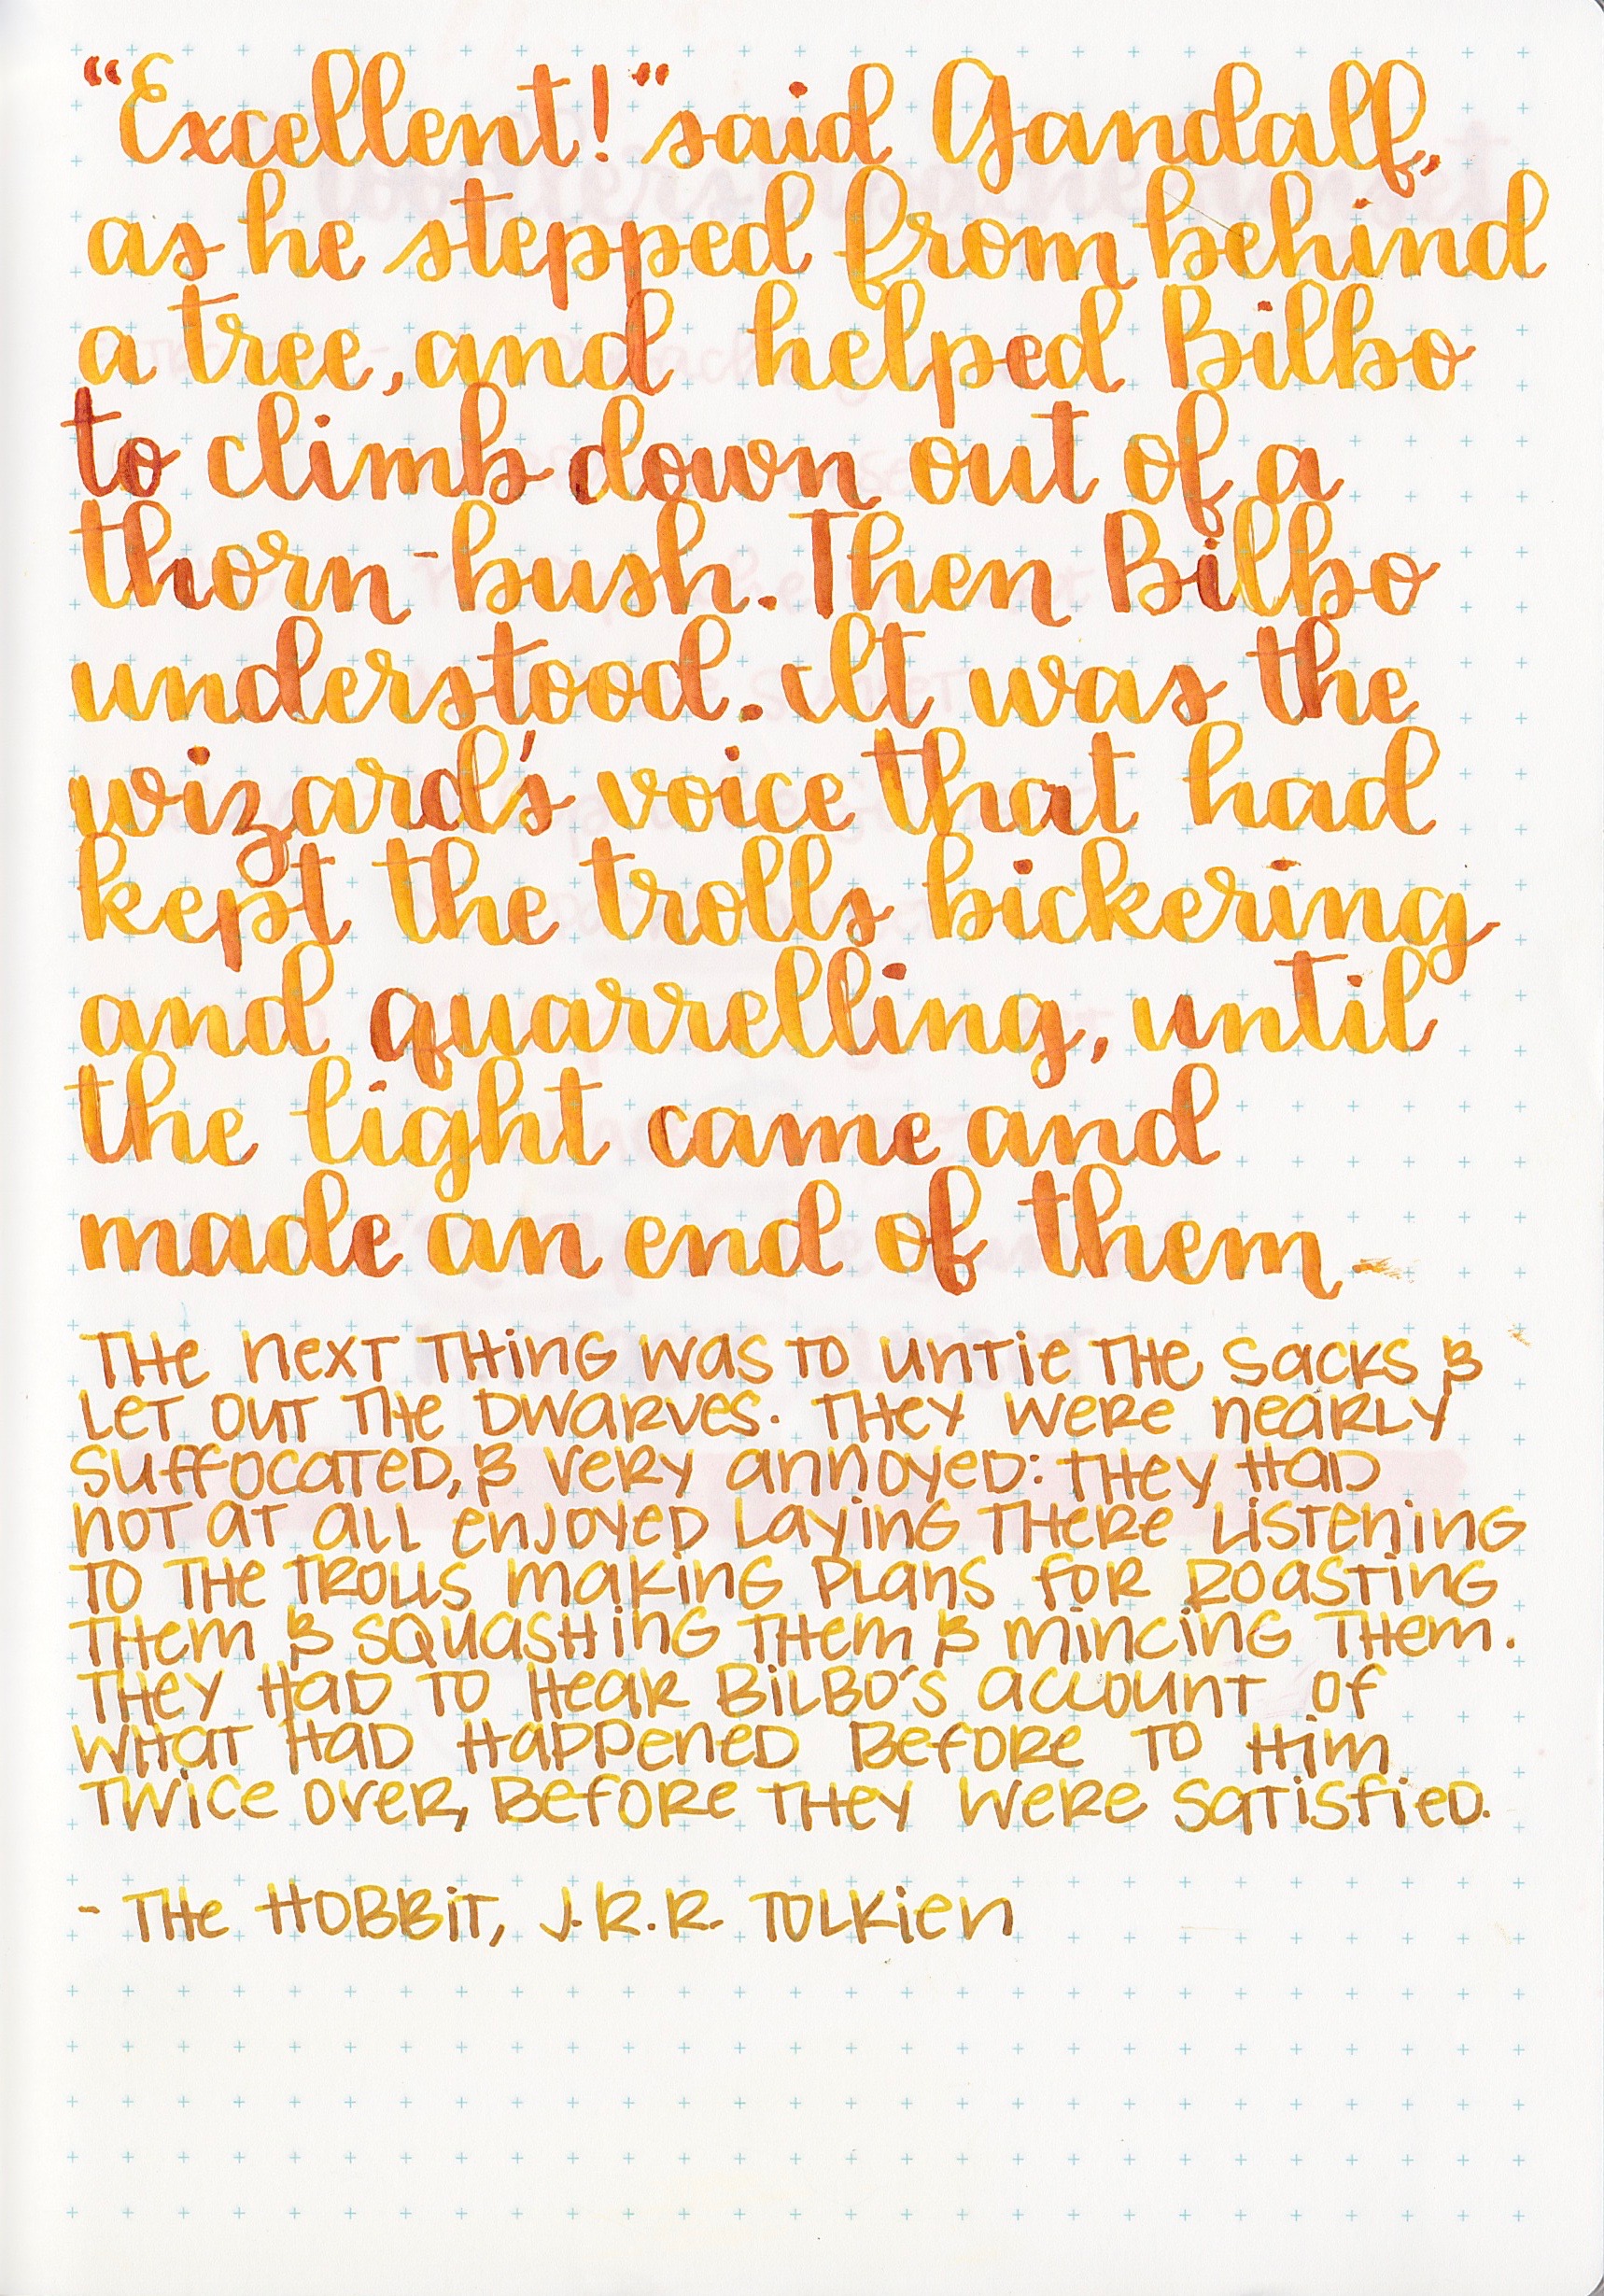 "Excellent!" said Gandalf,
as he stepped from behind
a tree, and helped Bilbo
to climb down out of a
thorn-bush. Then Bilbo
understood. It was the
wizard's voice that had
kept the trolls bickering
and quarrelling, until
the light came and
made an end of them.
THe NeXT THiNG WaS TO UNTie THe SaCKS &
LeT OUT THe DWaRVeS. THeY WeRe NeaRLY
SUffOCaTeD, & VeRY aNNOYeD: THeY HaD
NOT aT aLL eNJOYeD LaYiNG THeRe LiSTeNiNG
TO THe TROLLS MaKiNG PLaNS fOR ROaSTiNG
THeM & SQUaSHiNG THeM & MiNCiNG THeM.
THeY HaD TO HeaR BiLBO'S aCCOUNT Of
WHaT HaD HaPPeNeD BefORe TO HiM
TWiCe OVeR, BefORe THeY WeRe SaTiSfieD.
- THe HOBBiT, J.R.R. TOLKieN